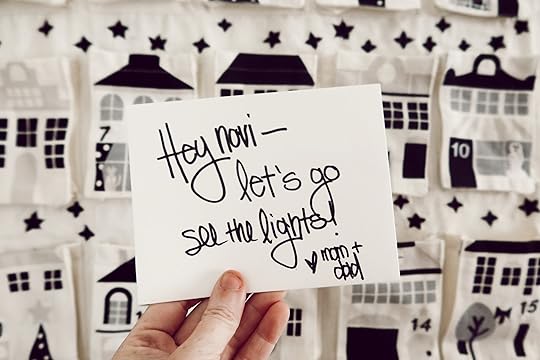 Hey novi –
let's go
see the lights!
♥ mom +
dad
7
10
14
15